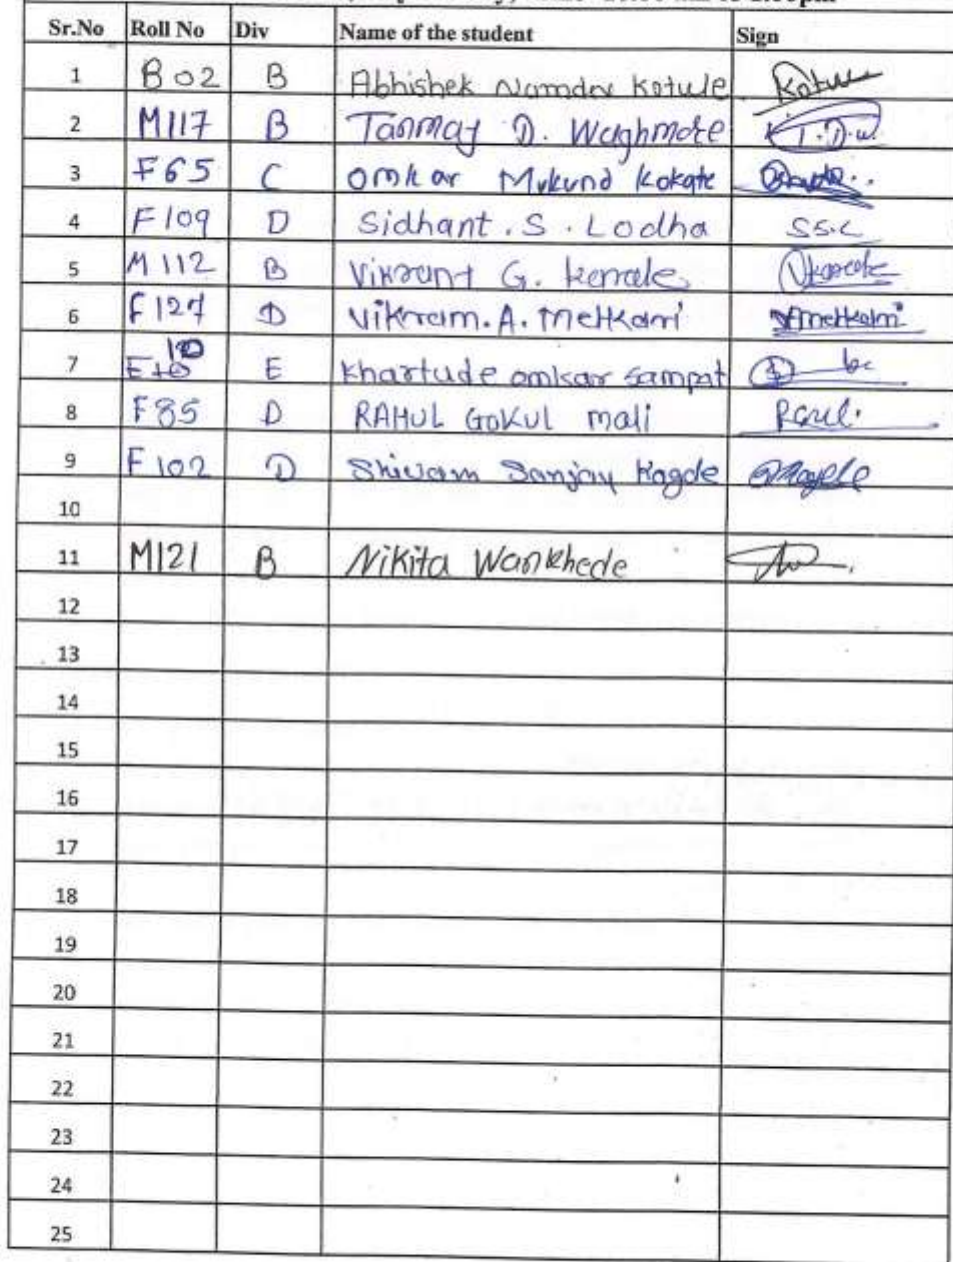 Sr.No Roll No Div Name of the student Sign
1 B02 B Abhishek Namdev Kotule Kotule
2 M117 B Tanmay D. Waghmore T.D.W
3 F65 C Omkar Mukund Kokate
4 F109 D Sidhant . S . Lodha S.S.L
5 M112 B Vikrant G. Karale
6 F127 D Vikram. A. Metkari
7 E10 E Khartude omkar sampat
8 F85 D RAHUL GOKUL mali
9 F102 D Shivam Sanjay Kagde
10
11 M121 B Nikita Wankhede
12
13
14
15
16
17
18
19
20
21
22
23
24
25